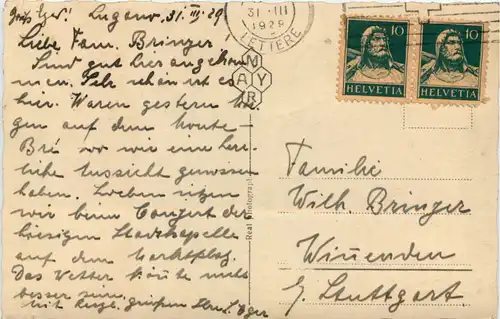 Lugano, 31. III. 29
Liebe Fam. Bringer
Sind gut hier angekom-
men. Sehr schön ist es
hier. Waren gestern
auf dem Monte-
Bré wo wir eine herr-
liche Aussicht genossen
haben. Soeben sitzen
wir beim Conzert der
hiesigen Stadtkapelle
auf dem Marktplatz.
Das Wetter könte nicht
besser sein.
Mit herzl. grüßen
31 III
1929
LETTERE
MAYR
Real Photograph
10
HELVETIA
10
HELVETIA
Familie
Wilh. Bringer
Winnenden
b. Stuttgart.